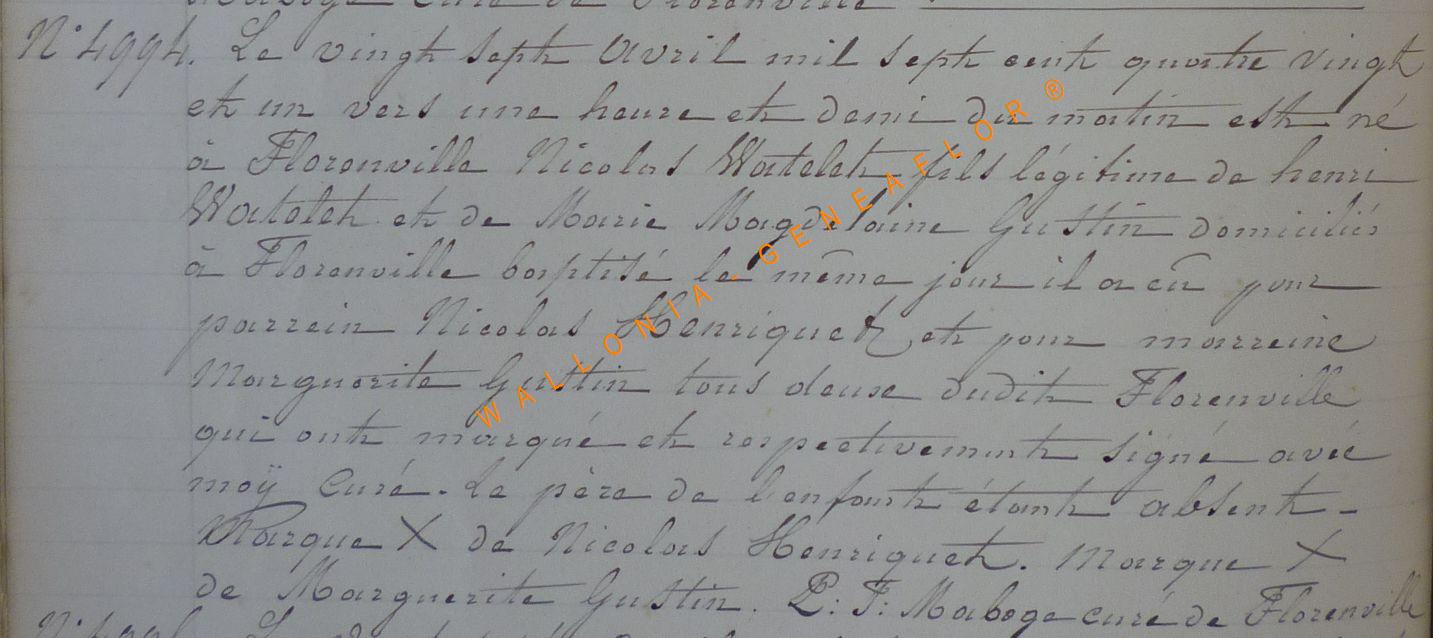 Maboge curé de Florenville
N° 4994. Le vingt sept Avril mil sept cent quatre vingt
et un vers une heure et demi du matin est né
à Florenville Nicolas Watelet fils légitime de henri
Watelet et de Marie Magdelaine Gustin domiciliés
à Florenville baptisé le même jour il a eû pour
parrein Nicolas Henriquet et pour marreine
Marguerite Gustin tous deux dudit Florenville
qui ont marqué et respectivement signé avec
moÿ Curé. Le père de l'enfant étant absent -
Marque X de Nicolas Henriquet. Marque X
de Marguerite Gustin. P: J: Maboge curé de Florenville
WALLONIA - GENEAFLOR ®